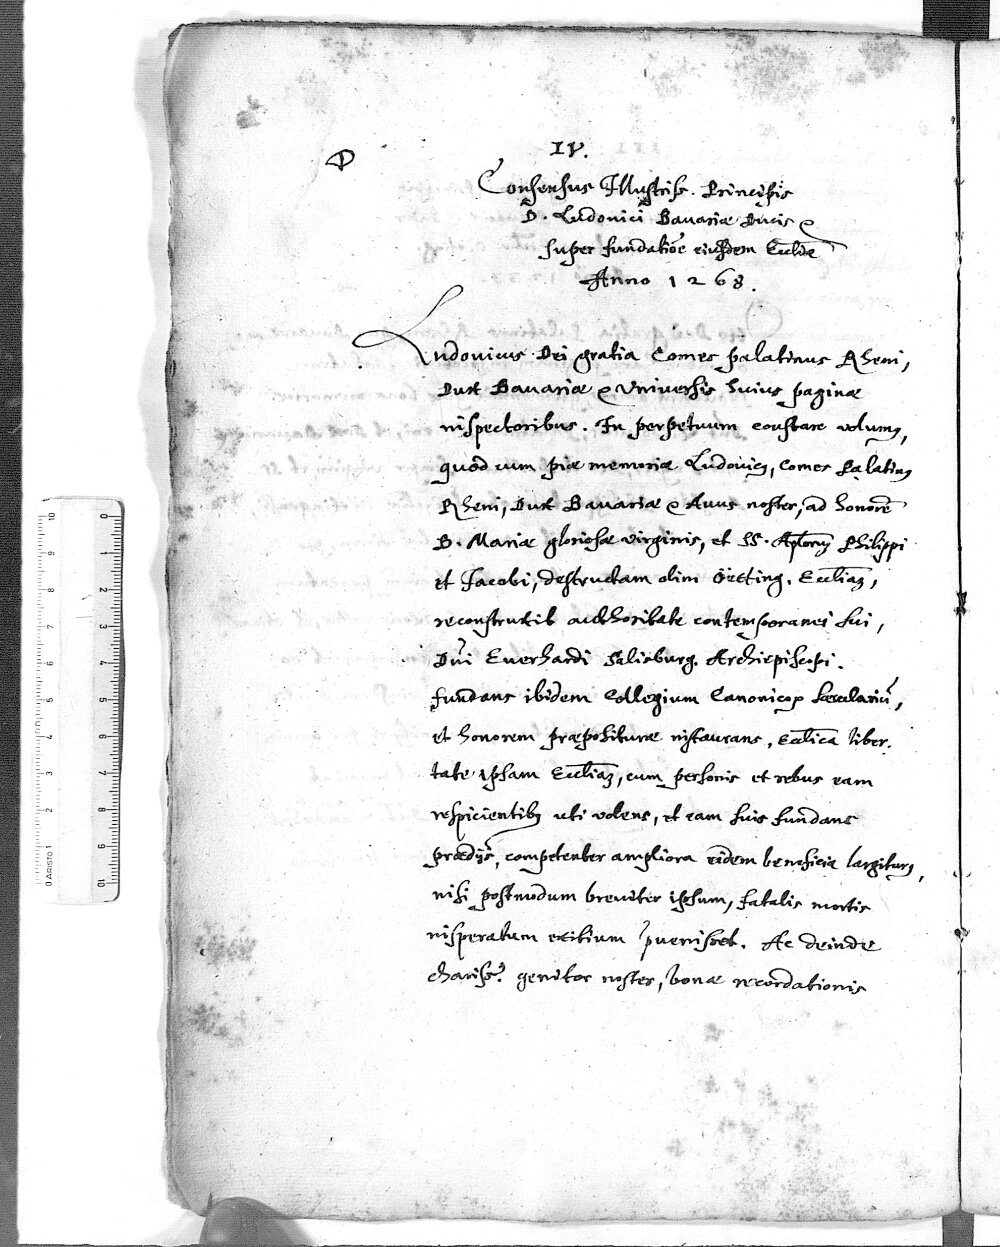 IV.
D
Consensus Illustriss. Principis
D. Ludovici Bavariæ Ducis &
super fundatiōe eiusdem Ecclīæ
Anno 1268.
Ludovicus Dei gratia Comes palatinus Rheni,
Dux Bavariæ & Vniversis huius paginæ
inspectoribus. In perpetuum constare volumꝯ,
quòd cum piæ memoriæ Ludovicꝯ, Comes Palatinꝯ
Rheni, Dux Bavariæ & Avus noster, ad honorē
B. Mariæ gloriosæ virginis, et SS. Apl̄orum Philippi
et Jacobi, destructam olim Öetting. Eccl̄iam,
reconstruxit authoritate contemporanei sui,
Dn̄i Everhardi Salisburg. Archiepiscopi.
fundans ibidem Collegium Canonicoꝝ sæculariū,
et honorem præposituræ instaurans, Eccl̄ica liber.
tate ipsam Eccl̄iam, cum personis et rebus eam
respicientibꝯ uti volens, et eam suis fundans
prædijs, competenter ampliora eidem beneficia largiturꝯ,
nisi postmodum breviter ipsum, fatalis mortis
insperatum exitium p̄uenisset. Ac deinde
chariss.ꝯ genitor noster, bonæ recordationis